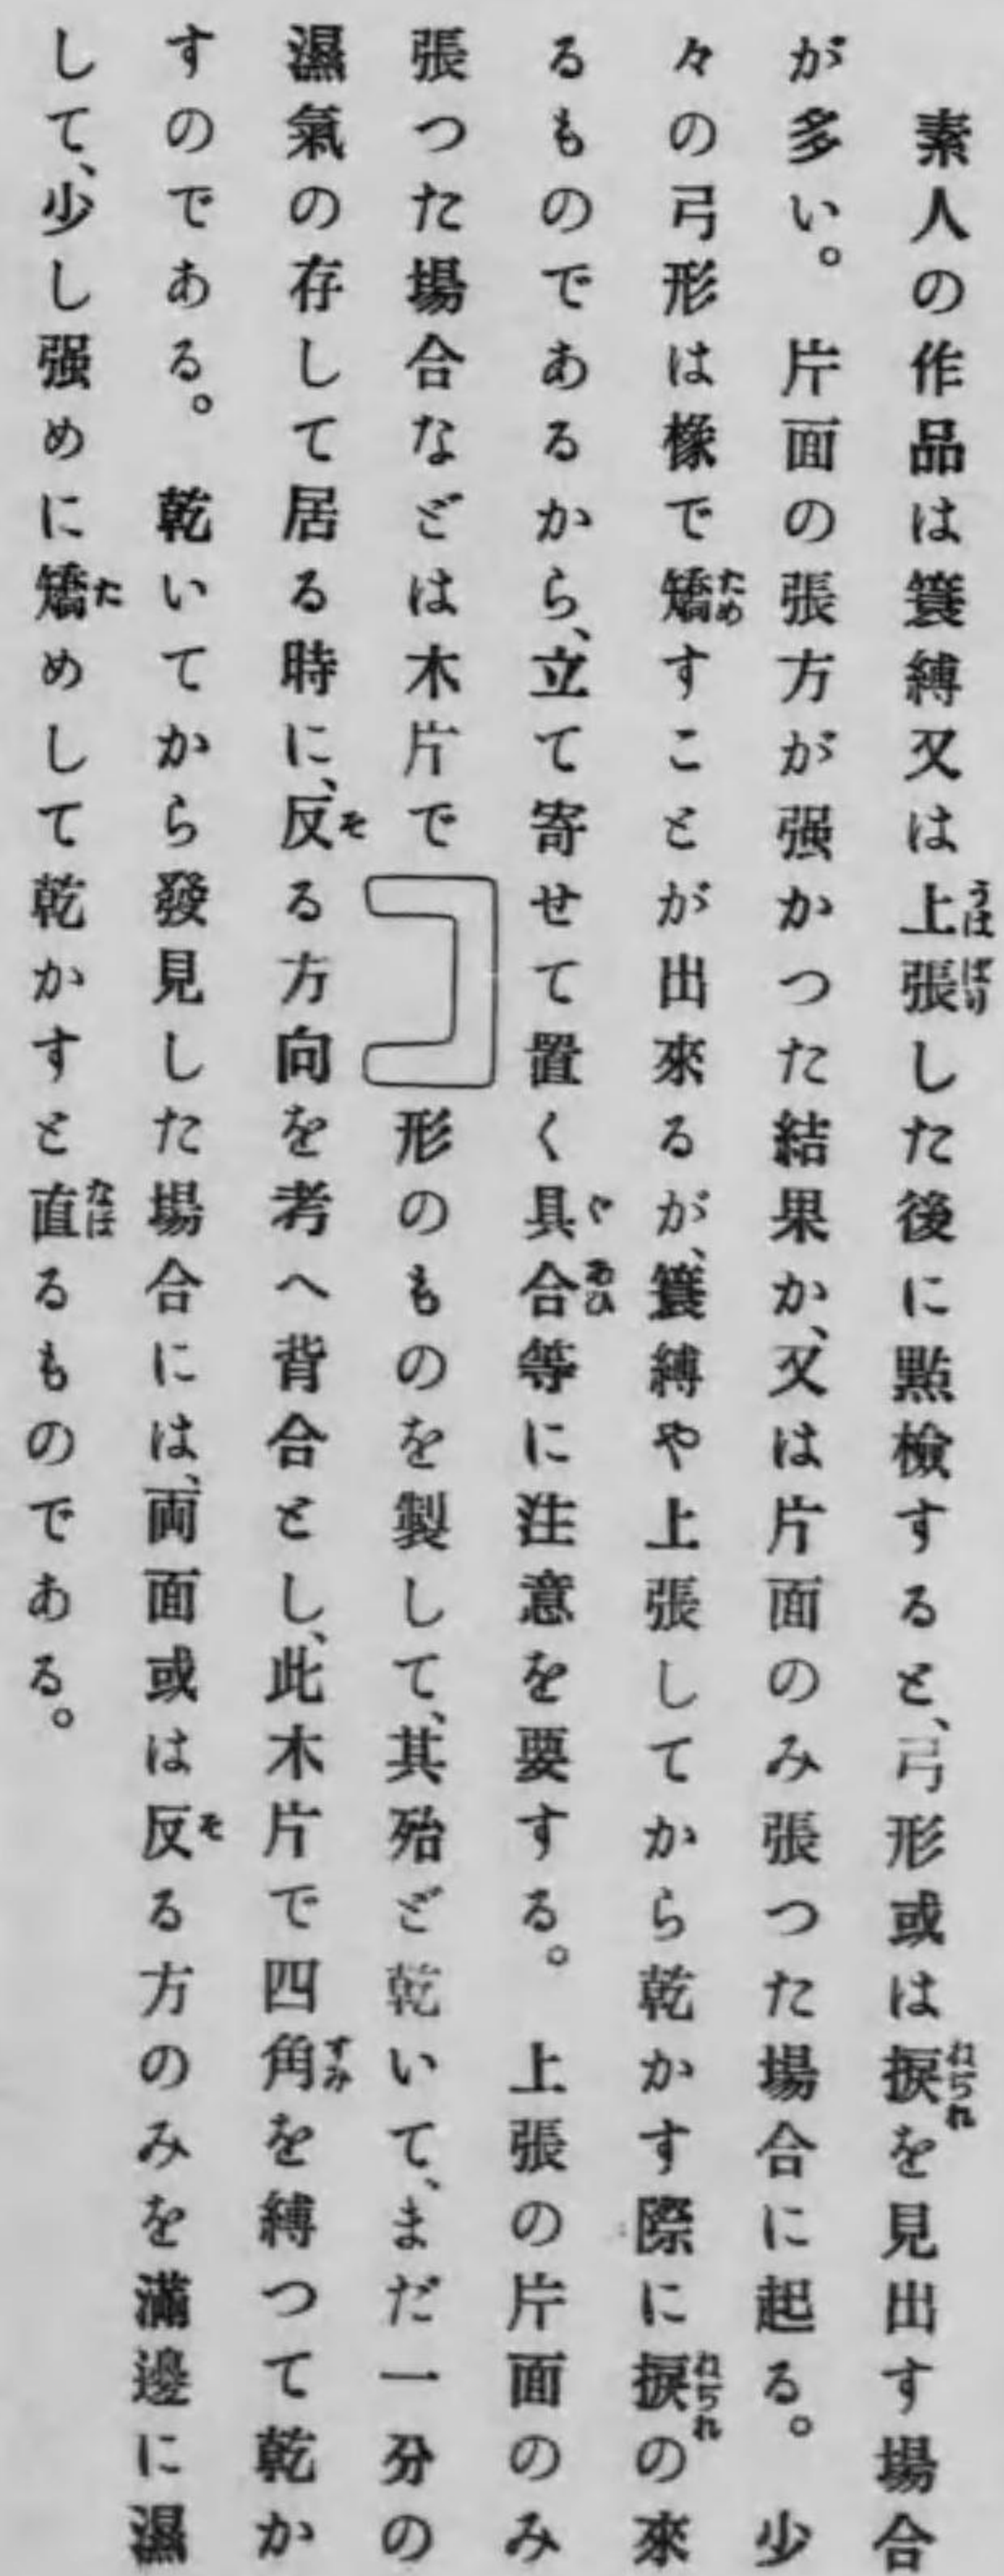 素人の作品は簑縛又は上張した後に點檢すると、弓形或は捩を見出す場合
が多い。片面の張方が强かつた結果か、又は片面のみ張つた場合に起る。少
々の弓形は橡で矯すことが出來るが、簑縛や上張してから乾かす際に捩の來
るものであるから、立て寄せて置く具合等に注意を要する。上張の片面のみ
張つた場合などは木片で形のものを製して、其殆ど乾いて、まだ一分の
濕氣の存して居る時に、反る方向を考へ背合とし、此木片で四角を縛つて乾か
すのである。乾いてから發見した場合には、両面或は反る方のみを滿邊に濕
して、少し强めに矯めして乾かすと直るものである。